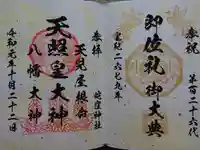 奉祝
第百二十六代
即位礼御大典
皇紀二六七九年
奉拝
天照皇大神
八幡大神
令和元年十月二十二日